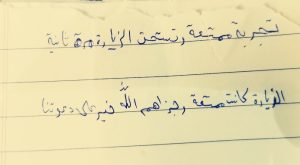 تجربة ممتعة وتستحق الزيارة مرة ثانية
الزيارة كانت ممتعة وجزاهم اللَّه خير على دعوتنا